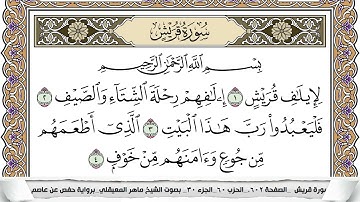 سُورَةُ قُرَيْشٍ
بِسْمِ ٱللَّهِ ٱلرَّحْمَٰنِ ٱلرَّحِيمِ
لِإِيلَٰفِ قُرَيْشٍ ١ إِۦلَٰفِهِمْ رِحْلَةَ ٱلشِّتَآءِ وَٱلصَّيْفِ ٢
فَلْيَعْبُدُوا۟ رَبَّ هَٰذَا ٱلْبَيْتِ ٣ ٱلَّذِىٓ أَطْعَمَهُم
مِّن جُوعٍ وَءَامَنَهُم مِّنْ خَوْفٍۭ ٤
سورة قريش _الصفحة ٦٠٢_ الحزب ٦٠_ الجزء ٣٠_ بصوت الشيخ ماهر المعيقلي_ برواية حفص عن عاصم